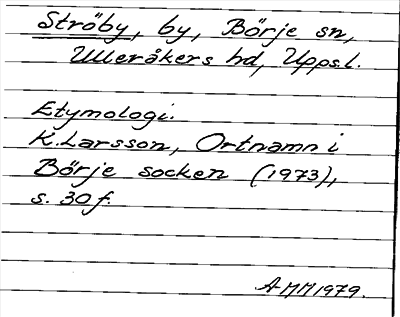 Ströby, by, Börje sn,
Ulleråkers hd, Upps.l.
Etymologi.
K. Larsson, Ortnamn i
Börje socken (1973),
s. 30 f.
AMM 1979.